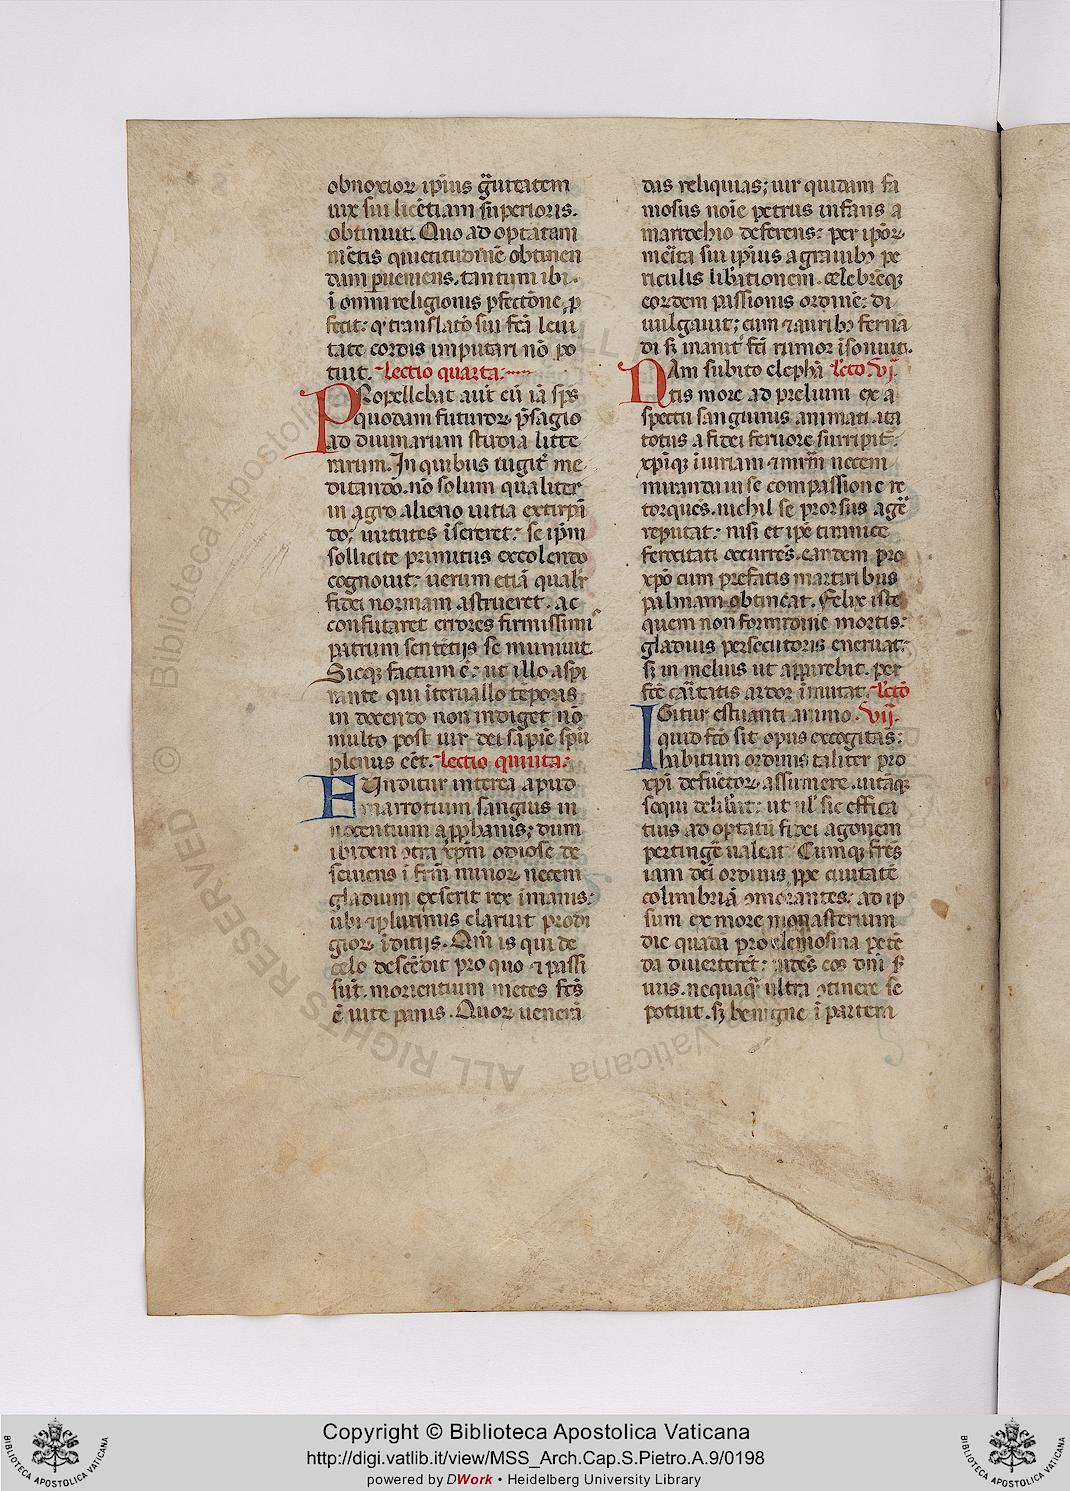 obnoxioꝝ ip̄ius g̃uitatem
uix sui licētiam superioris.
obtinuit. Quo ad optatam
mētis quietitudinē obtinen
dam pueniens. tantum ibi.
ī omni religionis pfectōne p
fecit: ꝙ translatō sui fcā leui
tate cordis imputari nō po
tuit. Lectio quarta:
PRopellebat aut̄ eū iā sps̄
quodam futuroꝝ p̄sagio
ad diuinarum studia litte
rarum. In quibus iugit̄ me
ditando. nō solum qualiter
in agro alieno uitia extirpā
do; uirtutes īsereret: se ip̄m
sollicite primitus excolendo
cognouit: uerum etiā qualr̄
fidei normam astrueret. ac
confutaret errores firmissimi
patrum sentētijs se muniuit.
Sicq; factum ē: ut illo aspi
rante qui īteruallo tēporis
in docendo non indiget nō
multo post uir dei sapīe spū
plenus eēt. Lectio quinta:
EFunditur interea apud
marrotium sanguis in
nocentium a pphanis; dum
ibidem ↄtra xp̄m odiose de
seuiens ī frm̄ minoꝝ necem
gladium exserit rex īmanis:
ubi ⁊ plurimis claruit prodi
gioꝝ īditijs. Qm̄ is qui de
celo descēdit pro quo ⁊ passi
sūt. morientium mētes fc̄s
ē uite panis. Quoꝝ uenerā
das reliquias; uir quidam fa
mosus noīe petrus infans a
marrochio deferens: per ipōꝝ
merīta sui ip̄ius a grauibꝫ pe
riculis lib̄ationem. celebrēq;
eordem passionis ordinē: di
uulgauit; cum ⁊ auribꝫ fernā
di sꝫ inanit̄ fc̄i rumor īsonuit.
NAm subito elephā lc̄to vj.
tis more ad prelium ex a
spectu sanguinis animati. ita
totus a fidei feruore surripit̄:
xp̄iq; īiuriam ⁊ mr̄m necem
miranda in se compassione re
torquēs. nichil se prorsus agē
reputat: nisi et ip̄e tirannice
ferocitati occurrēs. eandem pro
xp̄o cum prefatis martiribus
palmam obtineat. Felix iste
quem non formidine mortis:
gladius persecutoris eneruat:
sꝫ in melius ut apparebit. per
fc̄e caritatis ardor īmutat. lc̄tō
IGitur estuanti animo. vij.
quid fc̄o sit opus excogitas:
habitum ordinis taliter pro
xp̄i defūctoꝝ assumere. uitāq;
sequi delib̄at: ut ul' sic effica
tius ad optatū fidei agonem
pertingē ualeat Cumq; frēs
iam dcī ordinis, ppe ciuitatē
colimbriā ↄmorantes: ad ip
sum ex more monasterium
die quadā pro elemosina petē
da diuerterēt: uidēs eos dm̄i s̄
uus. nequaq̄ ultra ↄtinere se
potuit. sꝫ benigne ī partem
Copyright © Biblioteca Apostolica Vaticana
http://digi.vatlib.it/view/MSS_Arch.Cap.S.Pietro.A.9/0198
powered by DWork • Heidelberg University Library
BIBLIOTECA APOSTOLICA VATICANA
BIBLIOTECA APOSTOLICA VATICANA
© Biblioteca Apostolica Vaticana ALL RIGHTS RESERVED